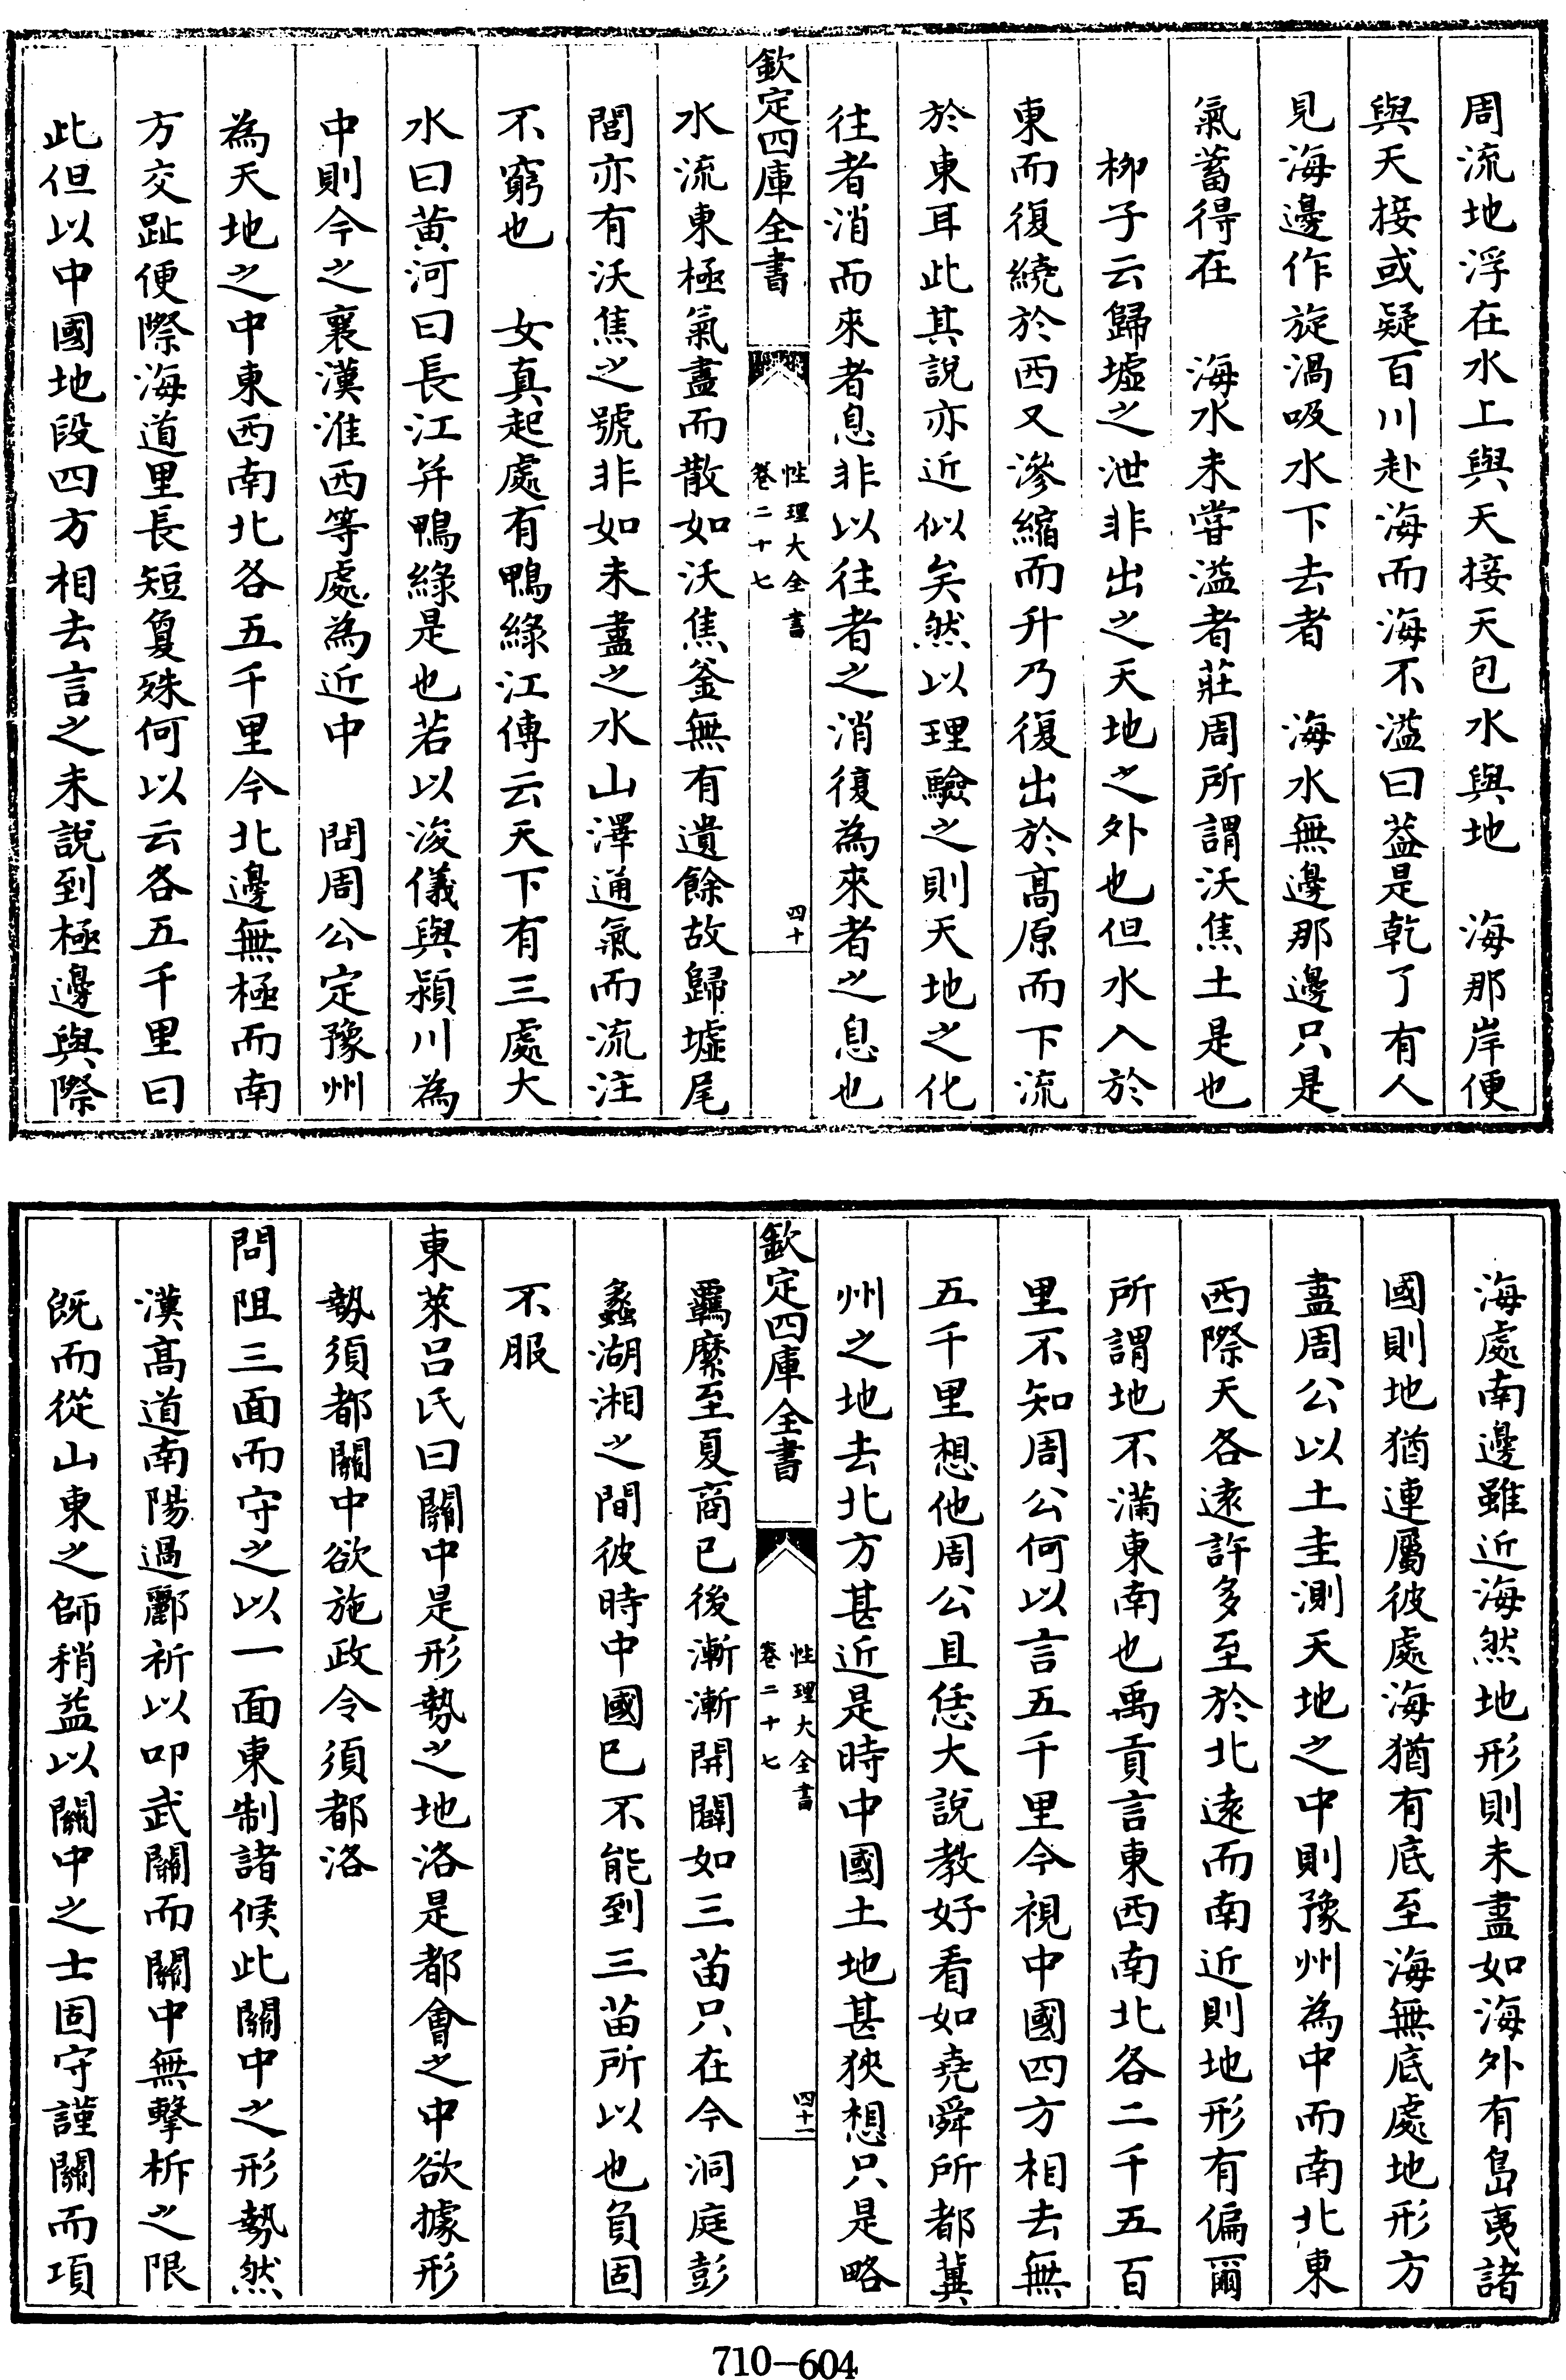 周流地浮在水上與天接天包水與地　海那岸便
與天接或疑百川赴海而海不溢曰葢是乾了有人
見海邊作旋渦吸水下去者　海水無邊那邊只是
氣蓄得在　海水未嘗溢者莊周所謂沃焦土是也
柳子云歸墟之泄非出之天地之外也但水入於
東而復繞於西又滲縮而升乃復出於髙原而下流
於東耳此其說亦近似矣然以理驗之則天地之化
往者消而來者息非以往者之消復為來者之息也
欽定四庫全書
性理大全書
卷二十七
四十
水流東極氣盡而散如沃焦釜無有遺餘故歸墟尾
閭亦有沃焦之號非如未盡之水山澤通氣而流注
不窮也　女真起處有鴨緑江傳云天下有三處大
水曰黄河曰長江并鴨綠是也若以浚儀與潁川為
中則今之襄漢淮西等處為近中　問周公定豫州
為天地之中東西南北各五千里今北邊無極而南
方交趾便際海道里長短敻殊何以云各五千里曰
此但以中國地段四方相去言之未說到極邊與際
海處南邊雖近海然地形則未盡如海外有島夷諸
國則地猶連屬彼處海猶有底至海無底處地形方
盡周公以土圭測天地之中則豫州為中而南北東
西際天各逺許多至於北逺而南近則地形有偏爾
所謂地不滿東南也禹貢言東西南北各二千五百
里不知周公何以言五千里今視中國四方相去無
五千里想他周公且恁大說教好看如堯舜所都冀
州之地去北方甚近是時中國土地甚狹想只是略
欽定四庫全書
性理大全書
卷二十七
四十一
羈縻至夏商已後漸漸開闢如三苗只在今洞庭彭
蠡湖湘之間彼時中國已不能到三苗所以也負固
不服
東萊呂氏曰關中是形勢之地洛是都會之中欲據形
勢須都關中欲施政令須都洛
問阻三面而守之以一面東制諸侯此關中之形勢然
漢髙道南陽過酈析以叩武關而關中無擊柝之限
既而從山東之師稍益以關中之士固守謹關而項
710—604